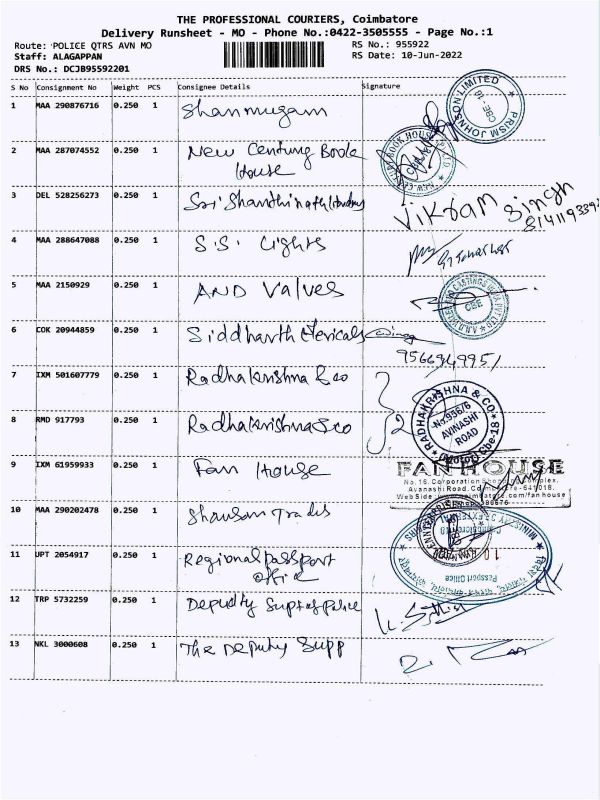 THE PROFESSIONAL COURIERS, Coimbatore
Delivery Runsheet - MO - Phone No.:0422-3505555 - Page No.:1
Route: POLICE QTRS AVN MO RS No.: 955922
Staff: ALAGAPPAN RS Date: 10-Jun-2022
DRS No.: DCJB95592201
S No Consignment No Weight PCS Consignee Details Signature
1 MAA 290876716 0.250 1 Shanmugam
PRISM JOHNSON LIMITED CBE
2 MAA 287074552 0.250 1 New Century Book
House
3 DEL 528256273 0.250 1 Sri Shanthinath
Vikram Singh
4 MAA 288647088 0.250 1 S.S. Lights
5 MAA 2150929 0.250 1 AND Valves
CBE
6 COK 20944859 0.250 1 Siddharth
7 IXM 501607779 0.250 1 Radhakrishna & co
8 RMD 917793 0.250 1 Radhakrishna & co
2
RADHAKRISHNA & CO
No.936/6
AVINASHI
ROAD
Cbe-18
9 IXM 61959933 0.250 1 Fan House
FAN HOUSE
No.16, Corporation Shopping Complex,
Avanashi Road, Coimbatore-641018.
10 MAA 290202478 0.250 1
11 UPT 2054917 0.250 1 Regional passport
office
Passport Office
12 TRP 5732259 0.250 1 Deputy Supt of police
13 NKL 3000608 0.250 1 The Deputy Supp